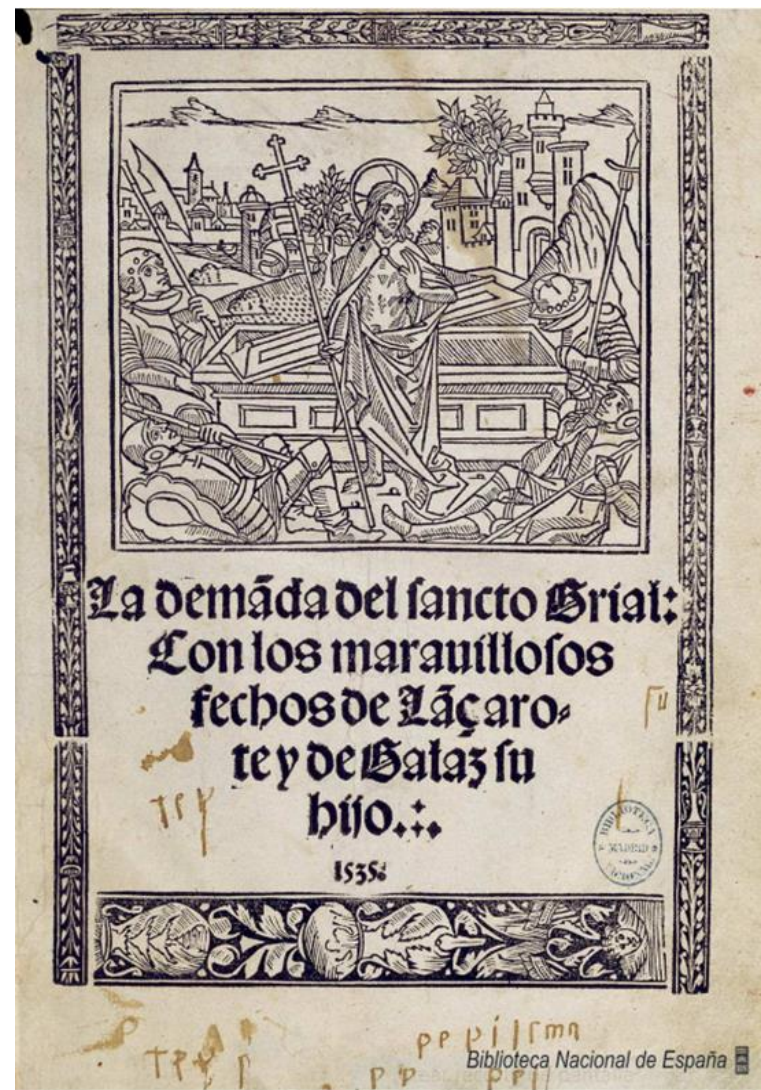 La demãda del ſancto Grial:
Con los marauilloſos
fechos de Lãçaro-
te y de Galaz ſu
hijo.:.
1535.
BIBLIOTECA
MADRID
NACIONAL
Biblioteca Nacional de España